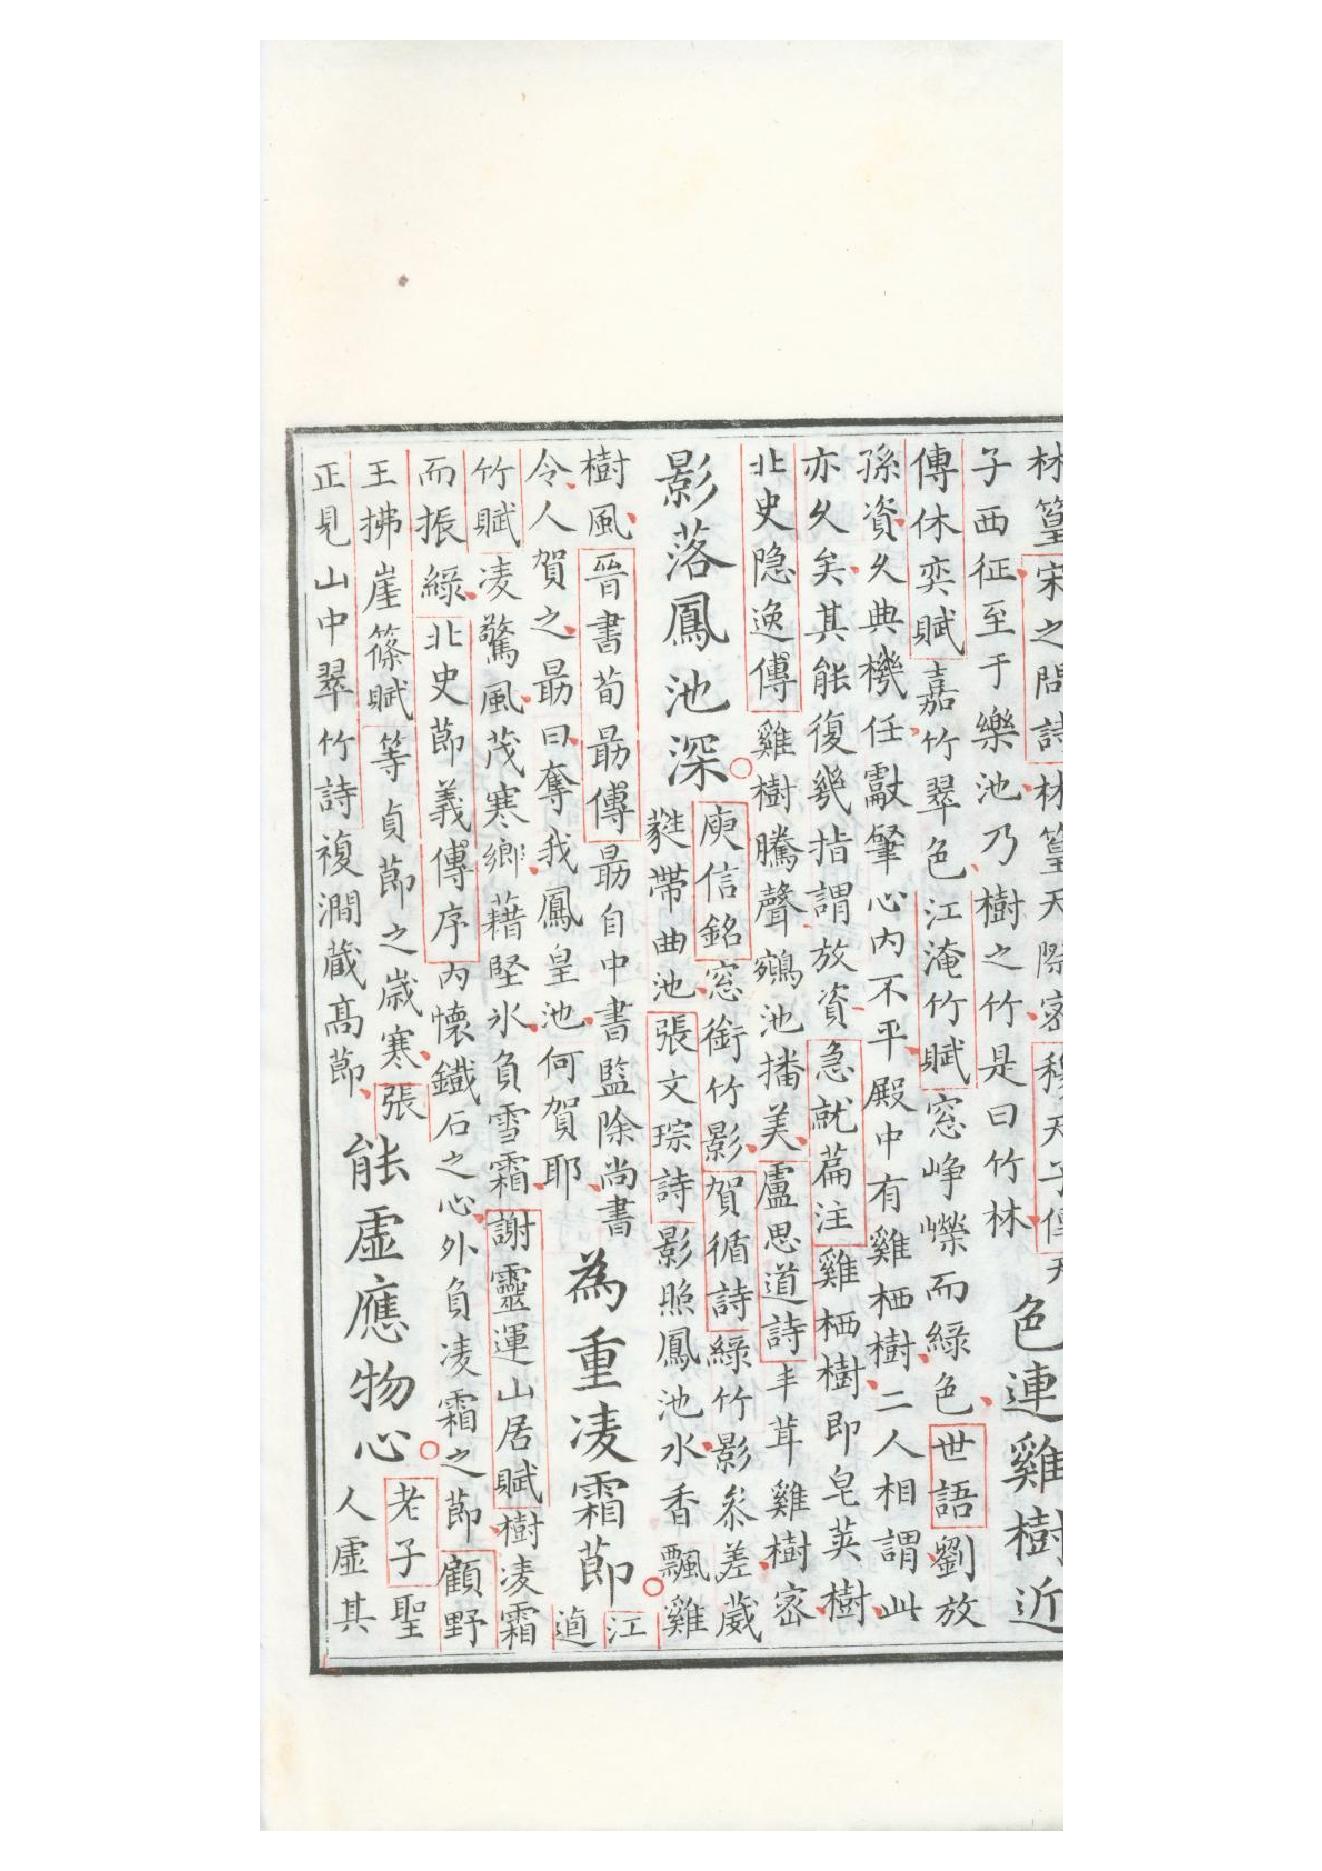 林篁宋之問詩林篁天際密穆天子傳天
子西征至于樂池乃樹之竹是曰竹林
色連雞樹近
傅休奕賦嘉竹翠色江淹竹賦窓崢嶸而綠色世語劉放
孫資久典機任獻肇心內不平殿中有雞栖樹二人相謂此
亦久矣其能復幾指謂放資急就篇注雞栖樹即皂莢樹
北史隐逸傳雞樹騰聲鵷池播美盧思道詩丰茸雞樹密
影落鳳池深
庾信銘窓銜竹影賀循詩綠竹影叅差葳
蕤帶曲池張文琮詩影照鳳池水香飄雞
樹風晉書荀勗傳勗自中書監除尚書
令人賀之勗曰奪我鳳皇池何賀耶
為重凌霜節
江
逌
竹賦凌驚風茂寒鄉藉堅氷負雪霜謝靈運山居賦樹凌霜
而振綠北史節義傳序內懷鐵石之心外負凌霜之節顧野
王拂崖篠賦等貞節之歲寒張
正見山中翠竹詩複澗藏高節
能虛應物心
老子聖
人虛其